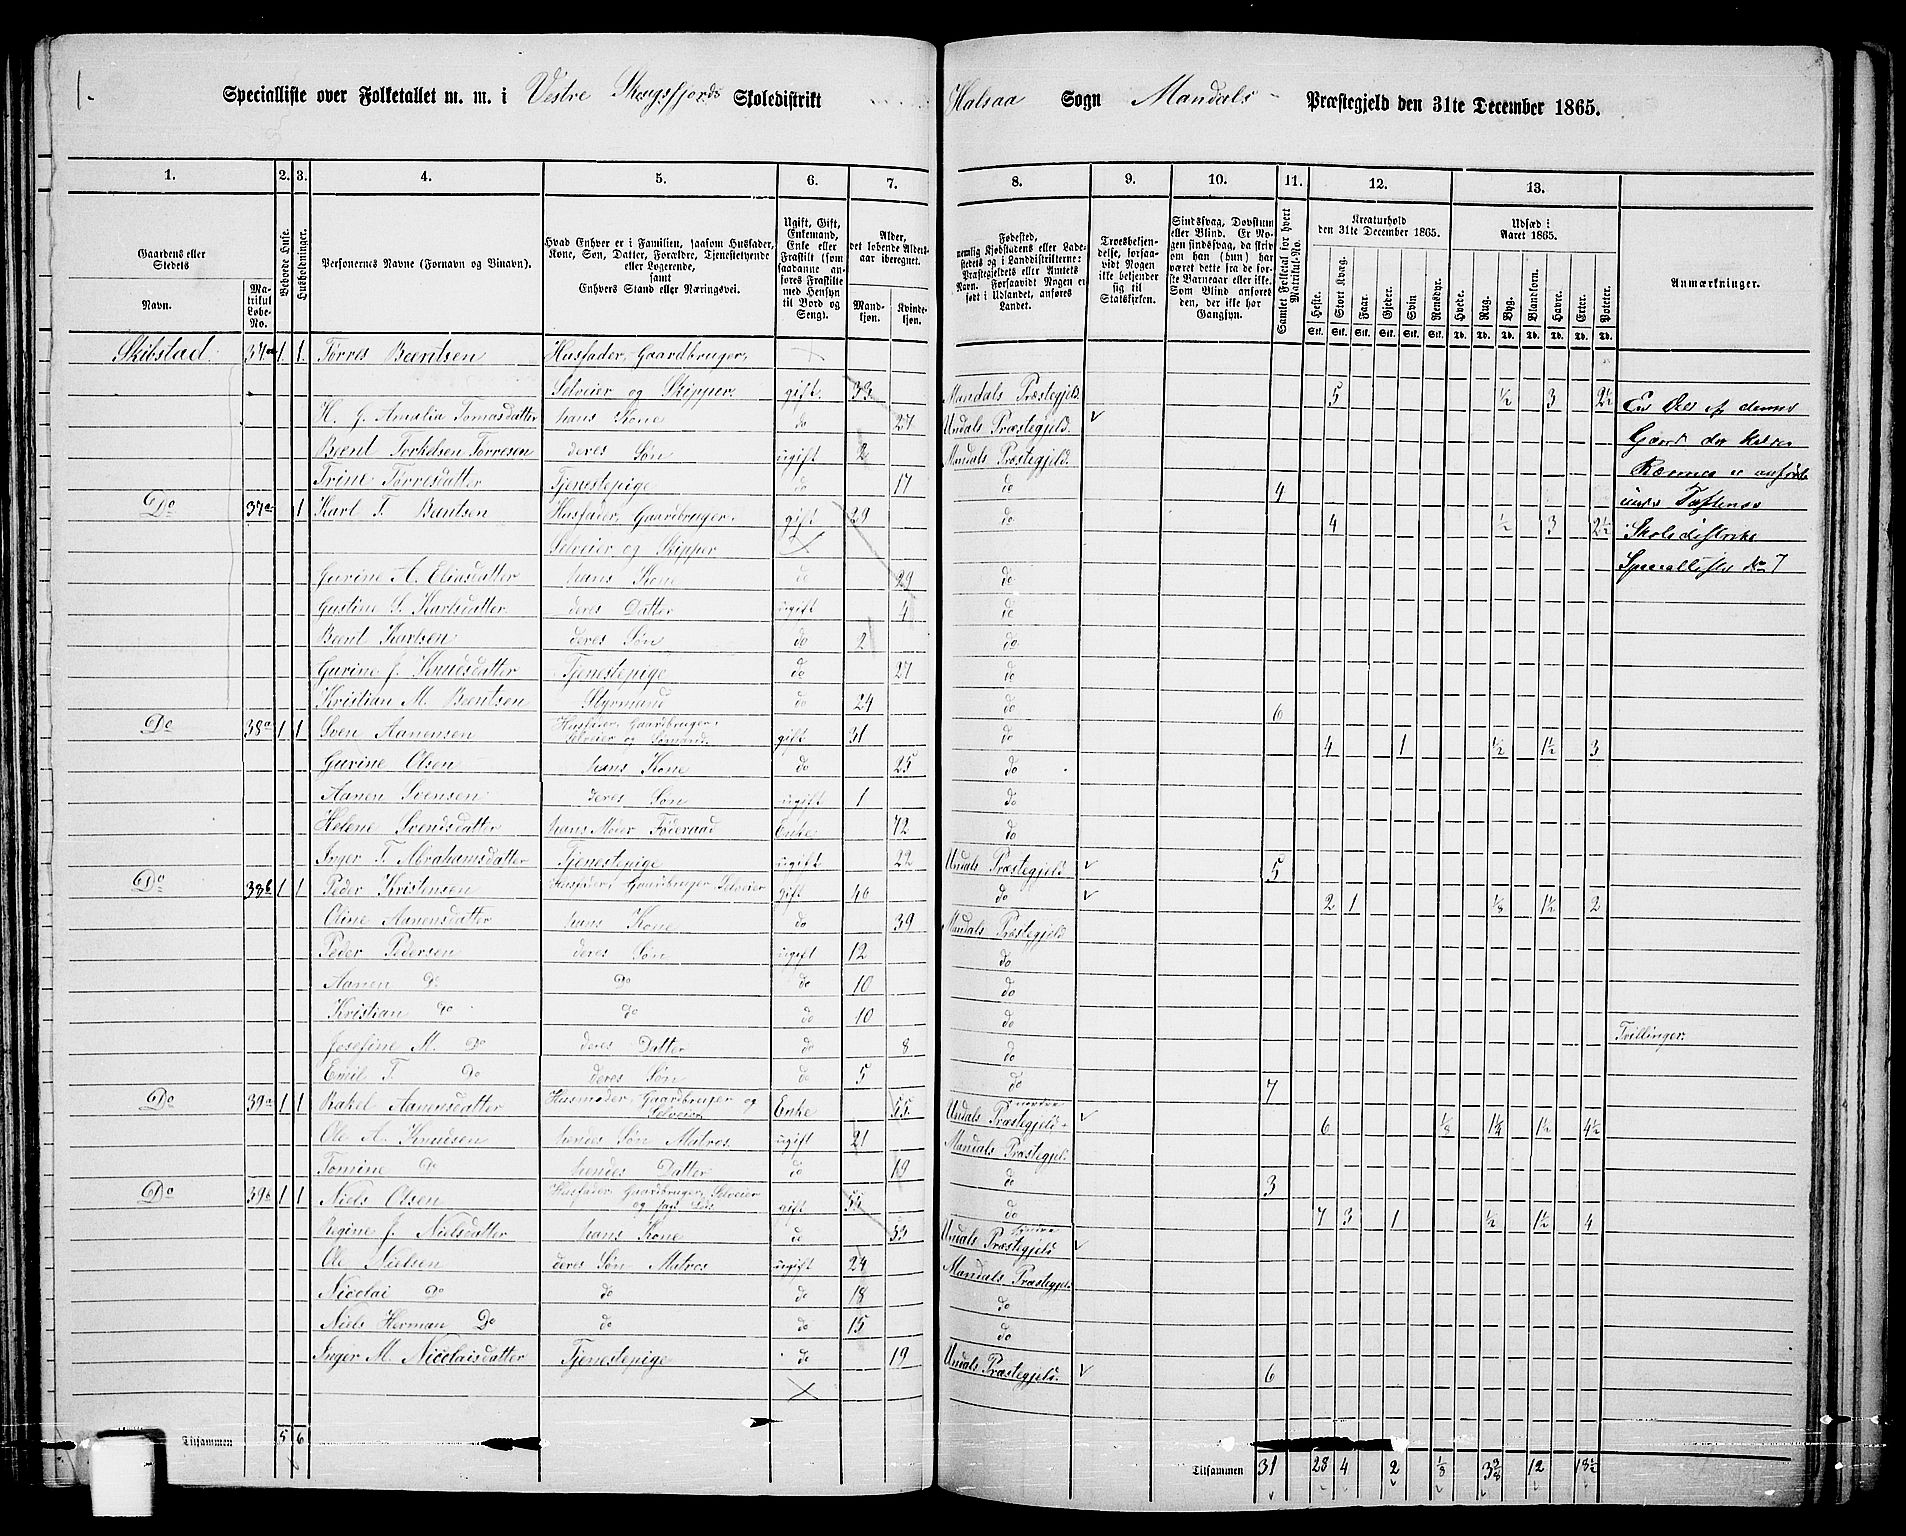 1.
Specialliste over Folketallet m. m. i Vestre Skogsfjords Skoledistrikt
Halsaa Sogn Mandals Præstegjeld den 31te December 1865.
1. 2. 3. 4. 5. 6. 7. 8. 9. 10. 11. 12. 13.
Gaardens eller Stedets
Navn.
Matrikul Løbe-No.
Beboede Huse.
Husholdninger.
Personernes Navne (Fornavn og Binavn).
Hvad Enhver er i Familien, saasom Husfader, Kone, Søn, Datter, Forældre, Tjenestetyende eller Logerende, samt Enhvers Stand eller Næringsvei.
Ugift, Gift, Enkemand, Enke eller Fraskilt (som saadanne anføres Fraskilte med Hensyn til Bord og Seng).
Alder, det løbende Aldersaar iberegnet.
Mandkjøn. Kvindekjøn.
Fødested, nemlig Kjøbstadens eller Ladestedets og i Landdistrikterne: Præstegjeldets eller Amtets Navn. Forsaavidt Nogen er født i Udlandet, anføres Landet.
Troesbekjendelse, forsaavidt Nogen ikke bekjender sig til Statskirken.
Sindssvag, Døvstum eller Blind. Er Nogen sindssvag, da skrives om han (hun) har været dette fra de første Barneaar eller ikke. Som Blind anføres den, der ikke har Gangsyn.
Samlet Folketal for hvert Matrikul-No.
Kreaturhold den 31te December 1865.
Heste. Stort Kvæg. Faar. Gjeder. Svin. Rensdyr.
Udsæd i Aaret 1865.
Hvede. Rug. Byg. Blandkorn. Havre. Erter. Poteter.
Anmærkninger.
Skibstad 37a 1 1 Tørres Beentsen Husfader, Gaardbruger,
Selveier og Skipper. gift. 33 Mandals Præstegjeld 5 ½ 3 2½ En Del af denne
H. J. Amalia Tomasdatter hans Kone do 27 Undals Præstegjeld. Gaard
Beent Torkelsen Tørresen deres Søn ugift 2 Mandals Præstegjeld. er anført
Trine Tørresdatter Tjenestepige do 17 do 4
Do 37a 1 Karl T. Beentsen Husfader, Gaardbruger, gift 29 do 4 ½ 3 2½ Skoledistrikt
Selveier og Skipper Specialliste No 7
Gurine A. Eliasdatter hans Kone do 29 do
Gustine S. Karlsdatter deres Datter ugift 4 do
Beent Karlsen deres Søn do 2 do
Gurine J. Knudsdatter Tjenestepige do 27 do
Kristian M. Beentsen Styrmand do 24 do 6
Do 38a 1 1 Sven Aanensen Husfader, Gaardbruger, Selveier og Sømand. gift 31 do 4 1 ½ 1½ 3
Gurine Olsen hans Kone do 25 do
Aanen Svensen deres Søn ugift 1 do
Helene Svendsdatter hans Moder Føderaad Enke 72 do
Inger T. Abrahamsdatter Tjenestepige ugift 22 Undals Præstegjeld 5
Do 38b 1 1 Peder Kristensen Husfader, Gaardbruger, Selveier gift 40 do 2 1 ⅛ 1½ 2
Oline Aanensdatter hans Kone do 39 Mandals Præstegjeld
Peder Pedersen deres Søn ugift 12 do
Aanen Do Do do 10 do
Kristian do do do 10 do Tvillinger
Josefine M. Do deres Datter do 8 do
Emil T. Do deres Søn do 5 do 7
Do 39a 1 1 Rakel Aanensdatter Husmoder, Gaardbruger og Selveier Enke 55 Undals Præstegjeld 6 ⅛ 1¼ 1½ 4½
Ole A. Knudsen hendes Søn Matros ugift 21 Mandals Præstegjel.
Tomine Do hendes Datter do 19 do 3
Do 39b 1 1 Niels Olsen Husfader, Gaardbruger, Selveier gift do 7 3 1 ½ 1½ 4
Regine J. Nielsdatter hans Kone do 53 Undals Præstegjeld
Ole Nielsen deres Søn Matros ugift 24 Mandals Præstegjel.
Nicolai Do do do 18 do
Niels Herman Do do do 15 do
Inger M. Nicolaisdatter Tjenestepige do 19 Undals Præstegjeld. 6
Tilsammen 5 6
Tilsammen 31 28 4 2 ⅛ 3⅜ 12 18½